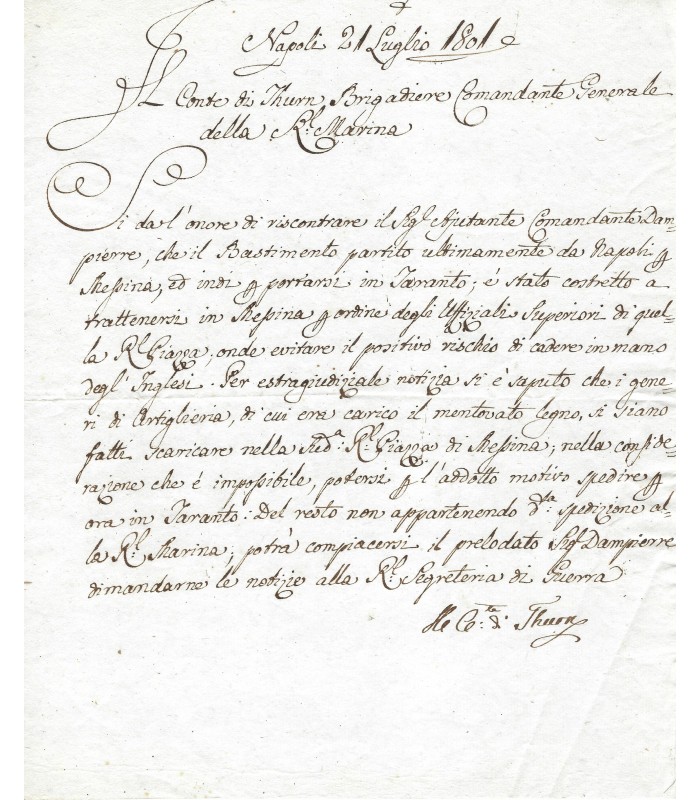 Napoli 21 Luglio 1801
Il Conte di Thurn Brigadiere Comandante Generale
della Rl. Marina
Si da l'onore di riscontrare il Sigr. Ajutante Comandante Dam-
pierre, che il Bastimento partito ultimamente da Napoli p
Messina, ed indi p portarsi in Taranto; è stato costretto a
trattenersi in Messina p ordine degli Uffiziali Superiori di quel-
la Rl. Piazza; onde evitare il positivo rischio di cadere in mano
degl'Inglesi. Per estragiudiziale notizia si è saputo che i gene-
ri di Artiglieria, di cui era carico il mentovato legno, si siano
fatti scaricare nella sudª. Rl. Piazza di Messina; nella conside-
razione che è impossibile, potersi p l'addotto motivo spedire p
ora in Taranto: Del resto non appartenendo dtta. spedizione al-
la Rl. Marina; potrà compiacersi il prelodato Sigr. Dampierre
dimandarne le notizie alla Rl. Segreteria di Guerra
Il Cote. di Thurn